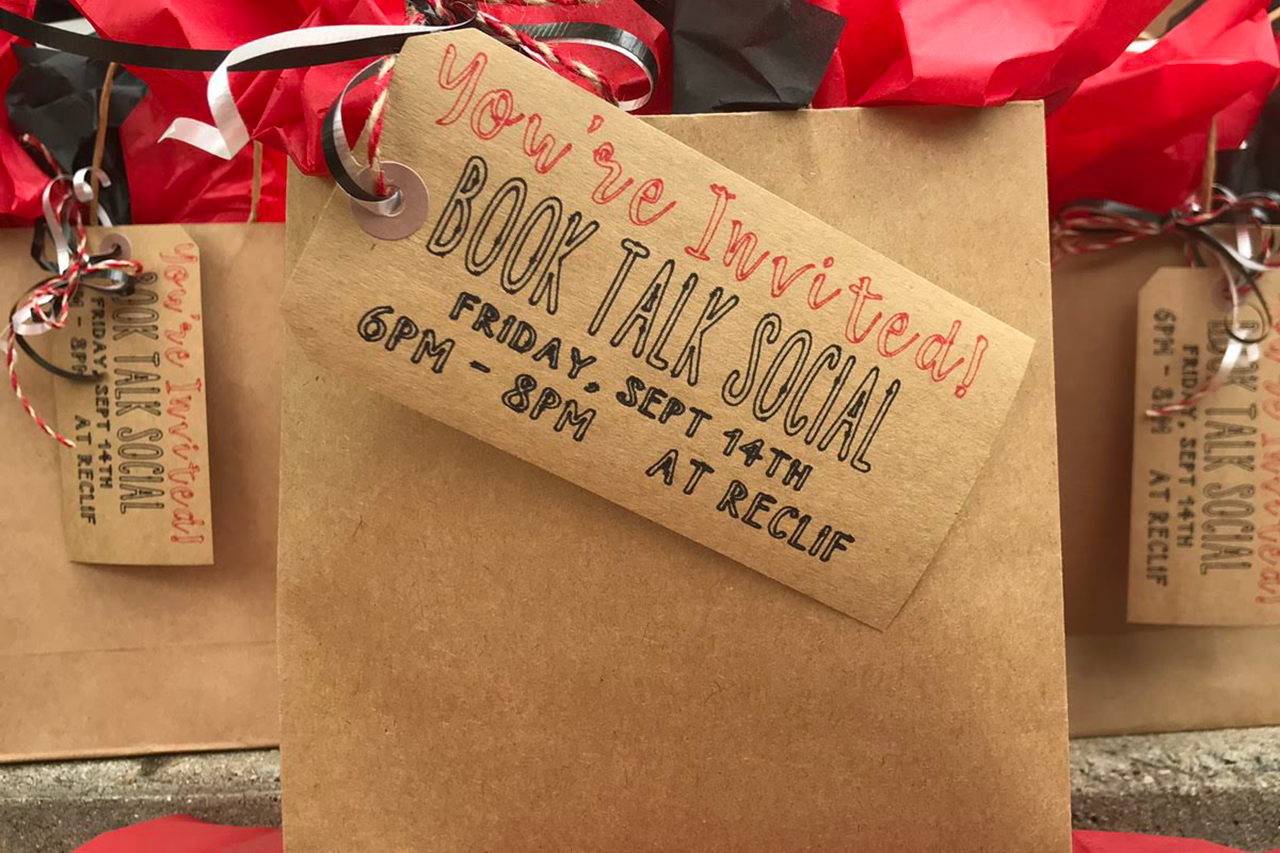 You're Invited!
BOOK TALK SOCIAL
FRIDAY, SEPT 14TH
6PM - 8PM AT RECLIF
You're Invited!
BOOK TALK SOCIAL
FRIDAY, SEPT 14TH
- 8PM AT RECLIF
Invited!
BOOK TALK SOCIAL
FRIDAY, SEPT 14TH
6PM - 8PM AT RECLIF